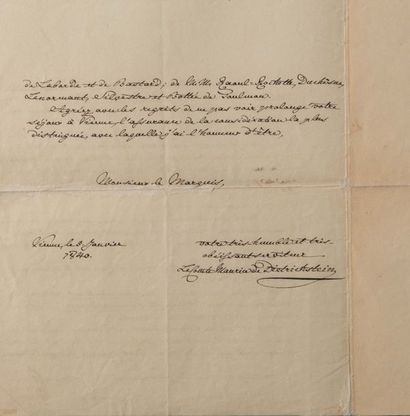 de Laborde et de Bastard; de M.M. Raoul-Rochette, Duchesne,
Lenormant, Silvestre et Battée de Toulmon.
Agréez avec les regrets de ne pas voir prolonger votre
séjour à Vienne l'assurance de la considération la plus
distinguée, avec laquelle j'ai l'honneur d'être,
Monsieur le Marquis,
Vienne, le 8 Janvier
1840.
votre très humble et très
obéissant serviteur
Le Comte Maurice de Dietrichstein